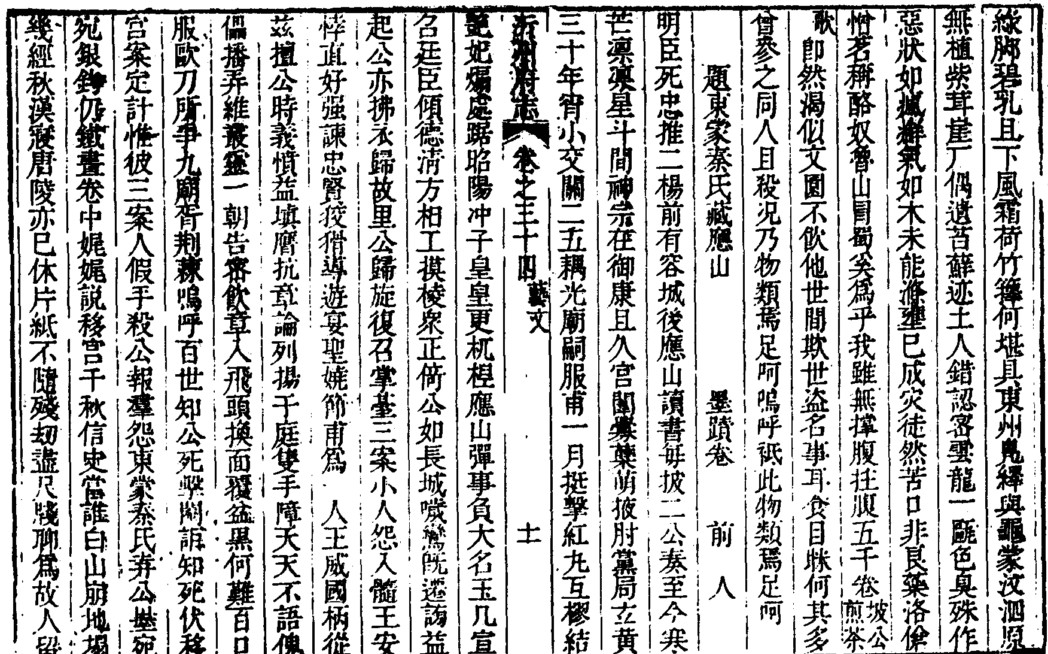 綠脚碧乳且下風霜荷竹籜何堪具東州鳧繹與龜蒙汶泗原
無植紫茸崖厂偶遺苔蘚迹土人錯認密雲龍一甌色臭殊作
惡狀如瘋癬氣如木未能滌壅已成灾徒然苦口非良藥洛傖
憎茗稱酪奴魯山冒蜀奚為乎我雖無撑腹拄腹五千卷坡公煎茶
歌卽然渴似文園不飲他世間欺世盜名事耳食目眯何其多
曾參之同人且殺况乃物類焉足呵嗚呼祗此物類焉足呵
題東家秦氏藏應山 墨蹟卷 前人
明臣死忠推二楊前有容城後應山讀書每披二公奏至今寒
芒凛凛星斗間神宗在御康且久宮闈釁孽萌掖肘黨局玄黃
三十年宵小交關二五耦光廟嗣服甫一月挺擊紅丸互樛結
沂州府志 卷之三十四 藝文 十一
艷妃煬處踞昭陽冲子皇皇更杌桯應山彈事負大名玉几宣
召廷臣傾德淸方相工摸棱衆正倚公如長城噦鸞旣遷謅益
起公亦拂衣歸故里公歸旋復召掌臺三案小人怨入髓王安
悻直好强諫忠賢狡猾導遊宴聖嬈節甫為一人王威國柄從
茲擅公時義憤益填膺抗章論列揚于庭隻手障天天不語傀
儡播弄維叢靈一朝告密飲章人飛頭換面覆盆黑何難百口
服歐刀所爭九廟胥荆棘嗚呼百世知公死擊閹詎知死伏移
宮案定計惟彼三案人假手殺公報羣怨東蒙秦氏弆公蹟宛
宛銀鈎仍鐵畫卷中娓娓說移宮千秋信史當誰白山崩地塌
幾經秋漢寢唐陵亦已休片紙不隨殘刼盡尺牋聊爲故人留